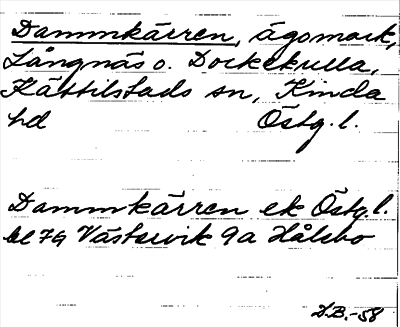 Dammkärren, ägomark,
Långnäs o. Dockekulla,
Kättilstads sn, Kinda
hd Östg. l.
Dammkärren ek Östg. l.
bl 79 Västervik 9a Hålsbo
D.B.-58